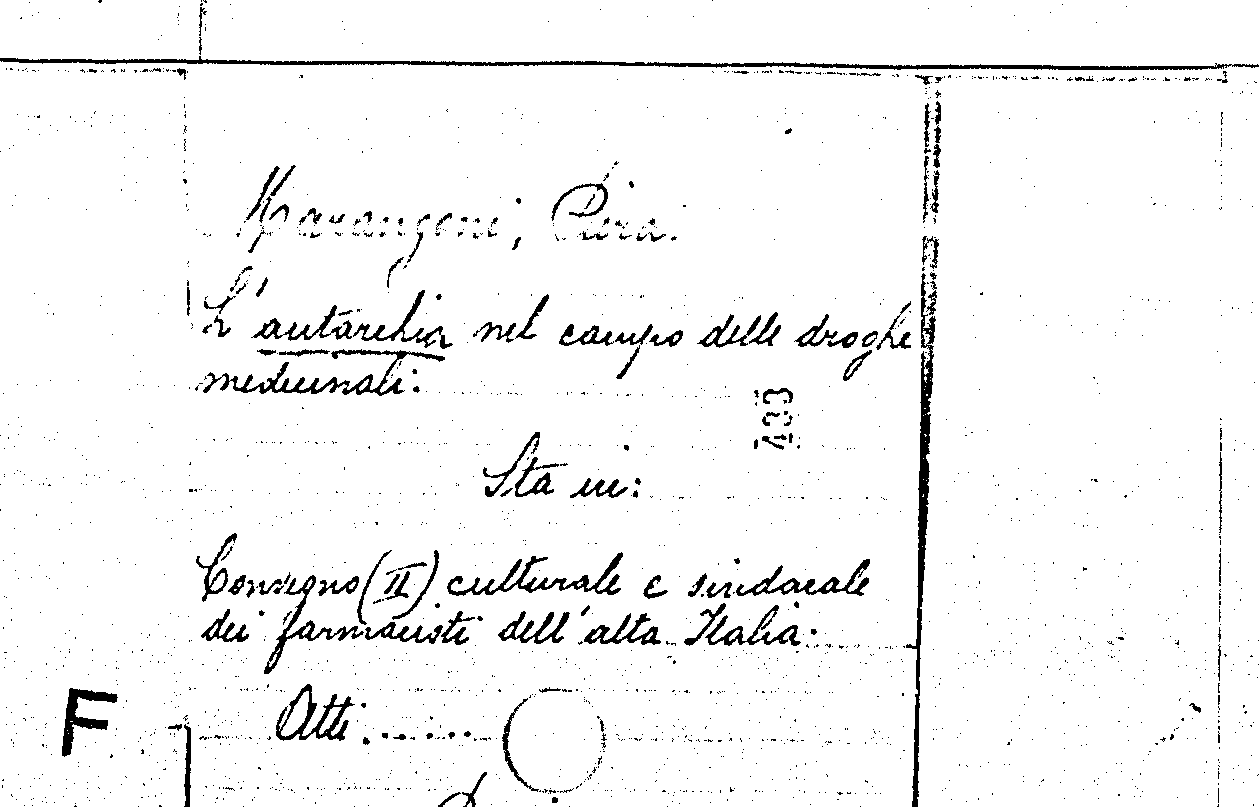 Marangoni, Piera.
L'autarchia nel campo delle droghe
medicinali.
433
Sta in:
Convegno (II) culturale e sindacale
dei farmacisti dell'alta Italia.
F
Atti.......